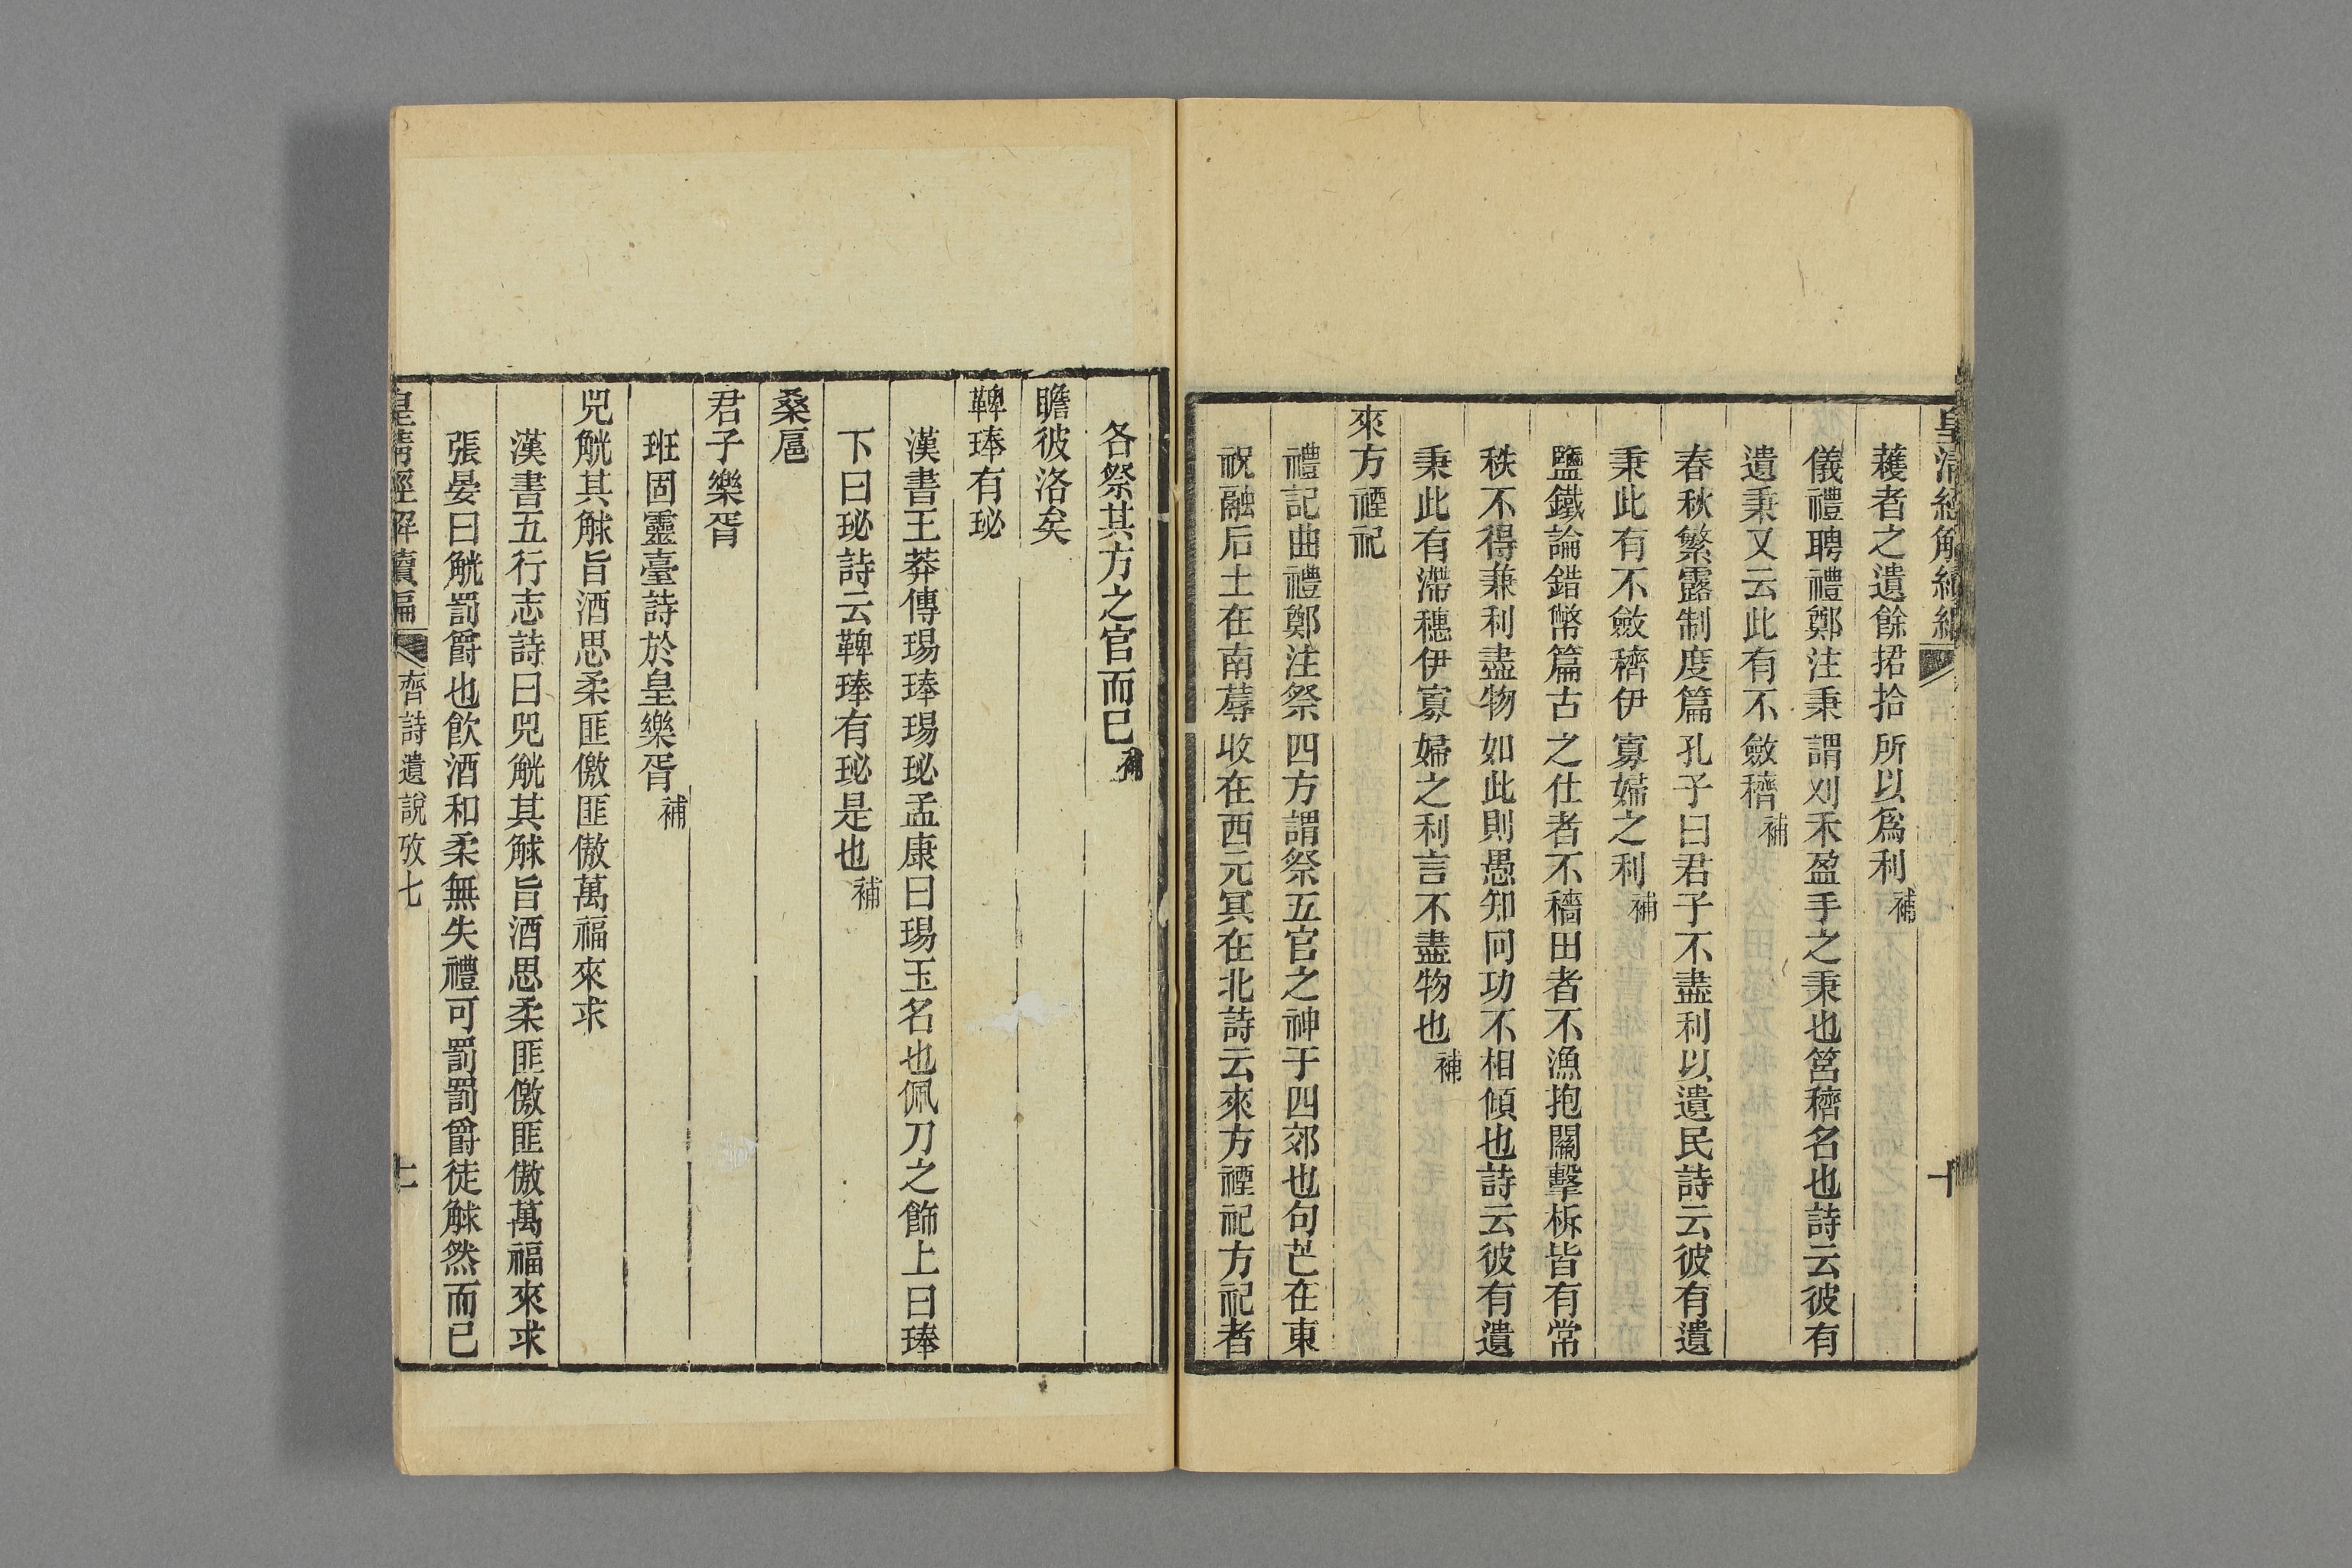 皇清經解續編
十
蒦者之遺餘捃拾所以爲利補
儀禮聘禮鄭注秉謂刈禾盈手之秉也筥穧名也詩云彼有
遺秉又云此有不斂穧補
春秋繁露制度篇孔子曰君子不盡利以遺民詩云彼有遺
秉此有不斂穧伊寡婦之利補
鹽鐵論錯幣篇古之仕者不穡田者不漁抱關擊柝皆有常
秩不得兼利盡物如此則愚知同功不相傾也詩云彼有遺
秉此有滯穗伊寡婦之利言不盡物也補
來方禋祀
禮記曲禮鄭注祭四方謂祭五官之神于四郊也句芒在東
祝融后土在南蓐收在西元冥在北詩云來方禋祀方祀者
各祭其方之官而已補
瞻彼洛矣
鞞琫有珌
漢書王莽傳瑒琫瑒珌孟康曰瑒玉名也佩刀之飾上曰琫
下曰珌詩云鞞琫有珌是也補
桑扈
君子樂胥
班固靈臺詩於皇樂胥補
兕觥其觩旨酒思柔匪儌匪傲萬福來求
漢書五行志詩曰兕觥其觩旨酒思柔匪儌匪傲萬福來求
張晏曰觥罰爵也飮酒和柔無失禮可罰罰爵徒觩然而已
皇清經解續編
齊詩遺說攷七